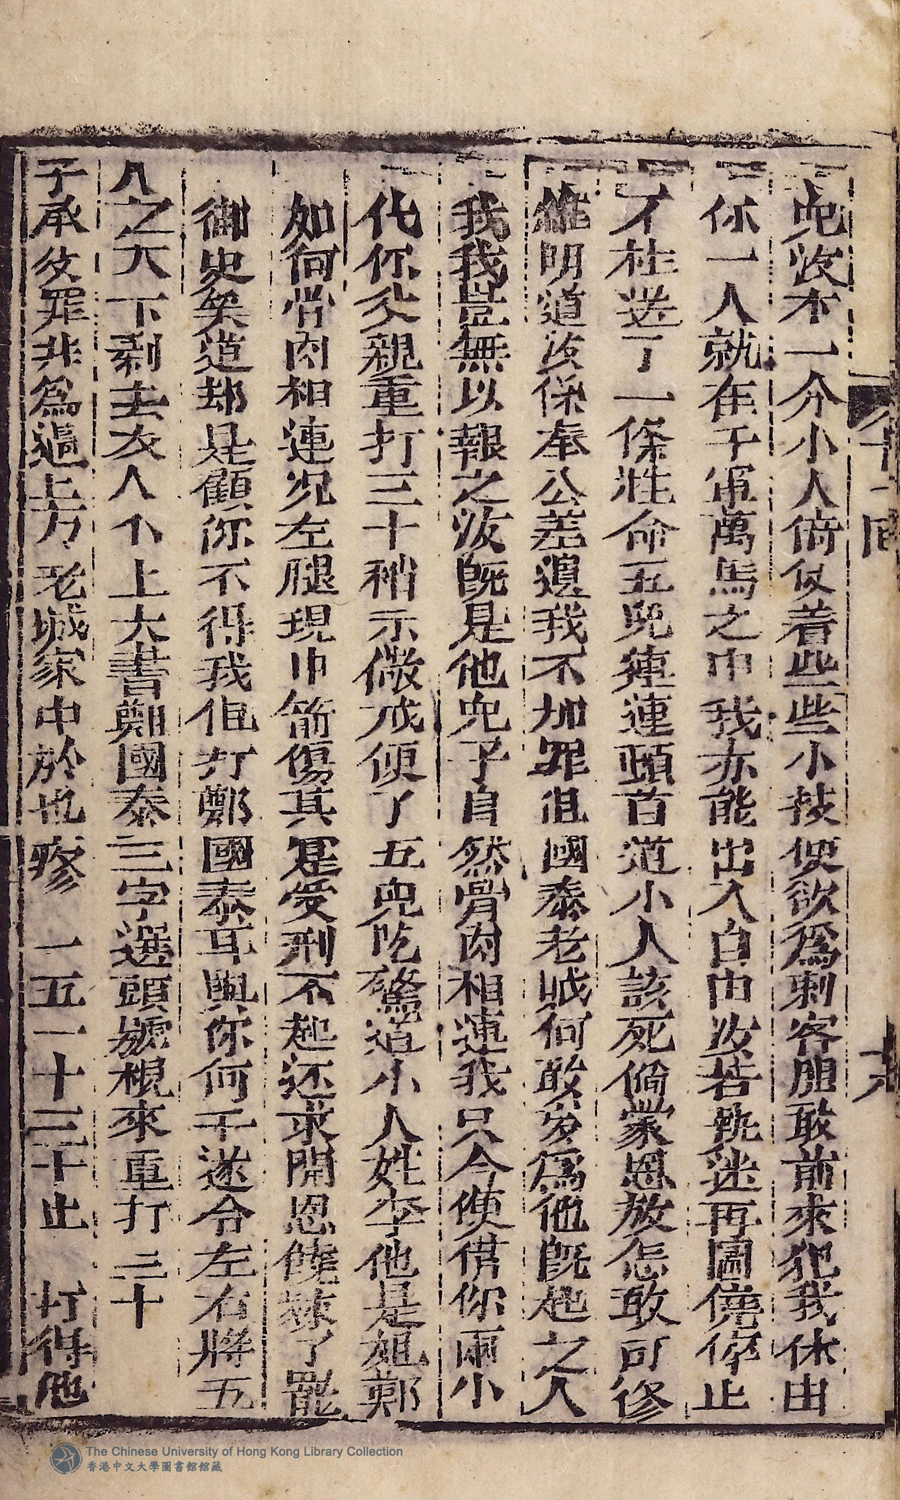 兇汝不一介小人倚仗着些些小技便欲爲刺客胆敢前來犯我休由
你一人就在千軍萬馬之中我亦能出入自由汝若執迷再圖僥倖止
才枉送了一條性命五兇連連頓首道小人該死倘蒙恩放怎敢可修
維明道汝係奉公差遣我不加罪但國泰老賊何敢妄爲他既起之人
我我豈無以報之汝既是他兇子自然骨肉相連我只今便借你兩小
代你父親重打三十稍示儆戒便了五兇吃驚道小人姓李他是姐鄭
如何骨肉相連况左腿現中箭傷其寔受刑不起还求開恩饒恕了罷
御史笑道却是顧你不得我但打鄭國泰耳與你何干遂令左右將五
人之大下剥去衣人个上大書鄭國泰三字選頭號棍來重打三十
子承父罪非爲過 上方 老城家中於也疼 一五一十三十止 打得他
十一回
十六
The Chinese University of Hong Kong Library Collection
香港中文大學圖書館館藏